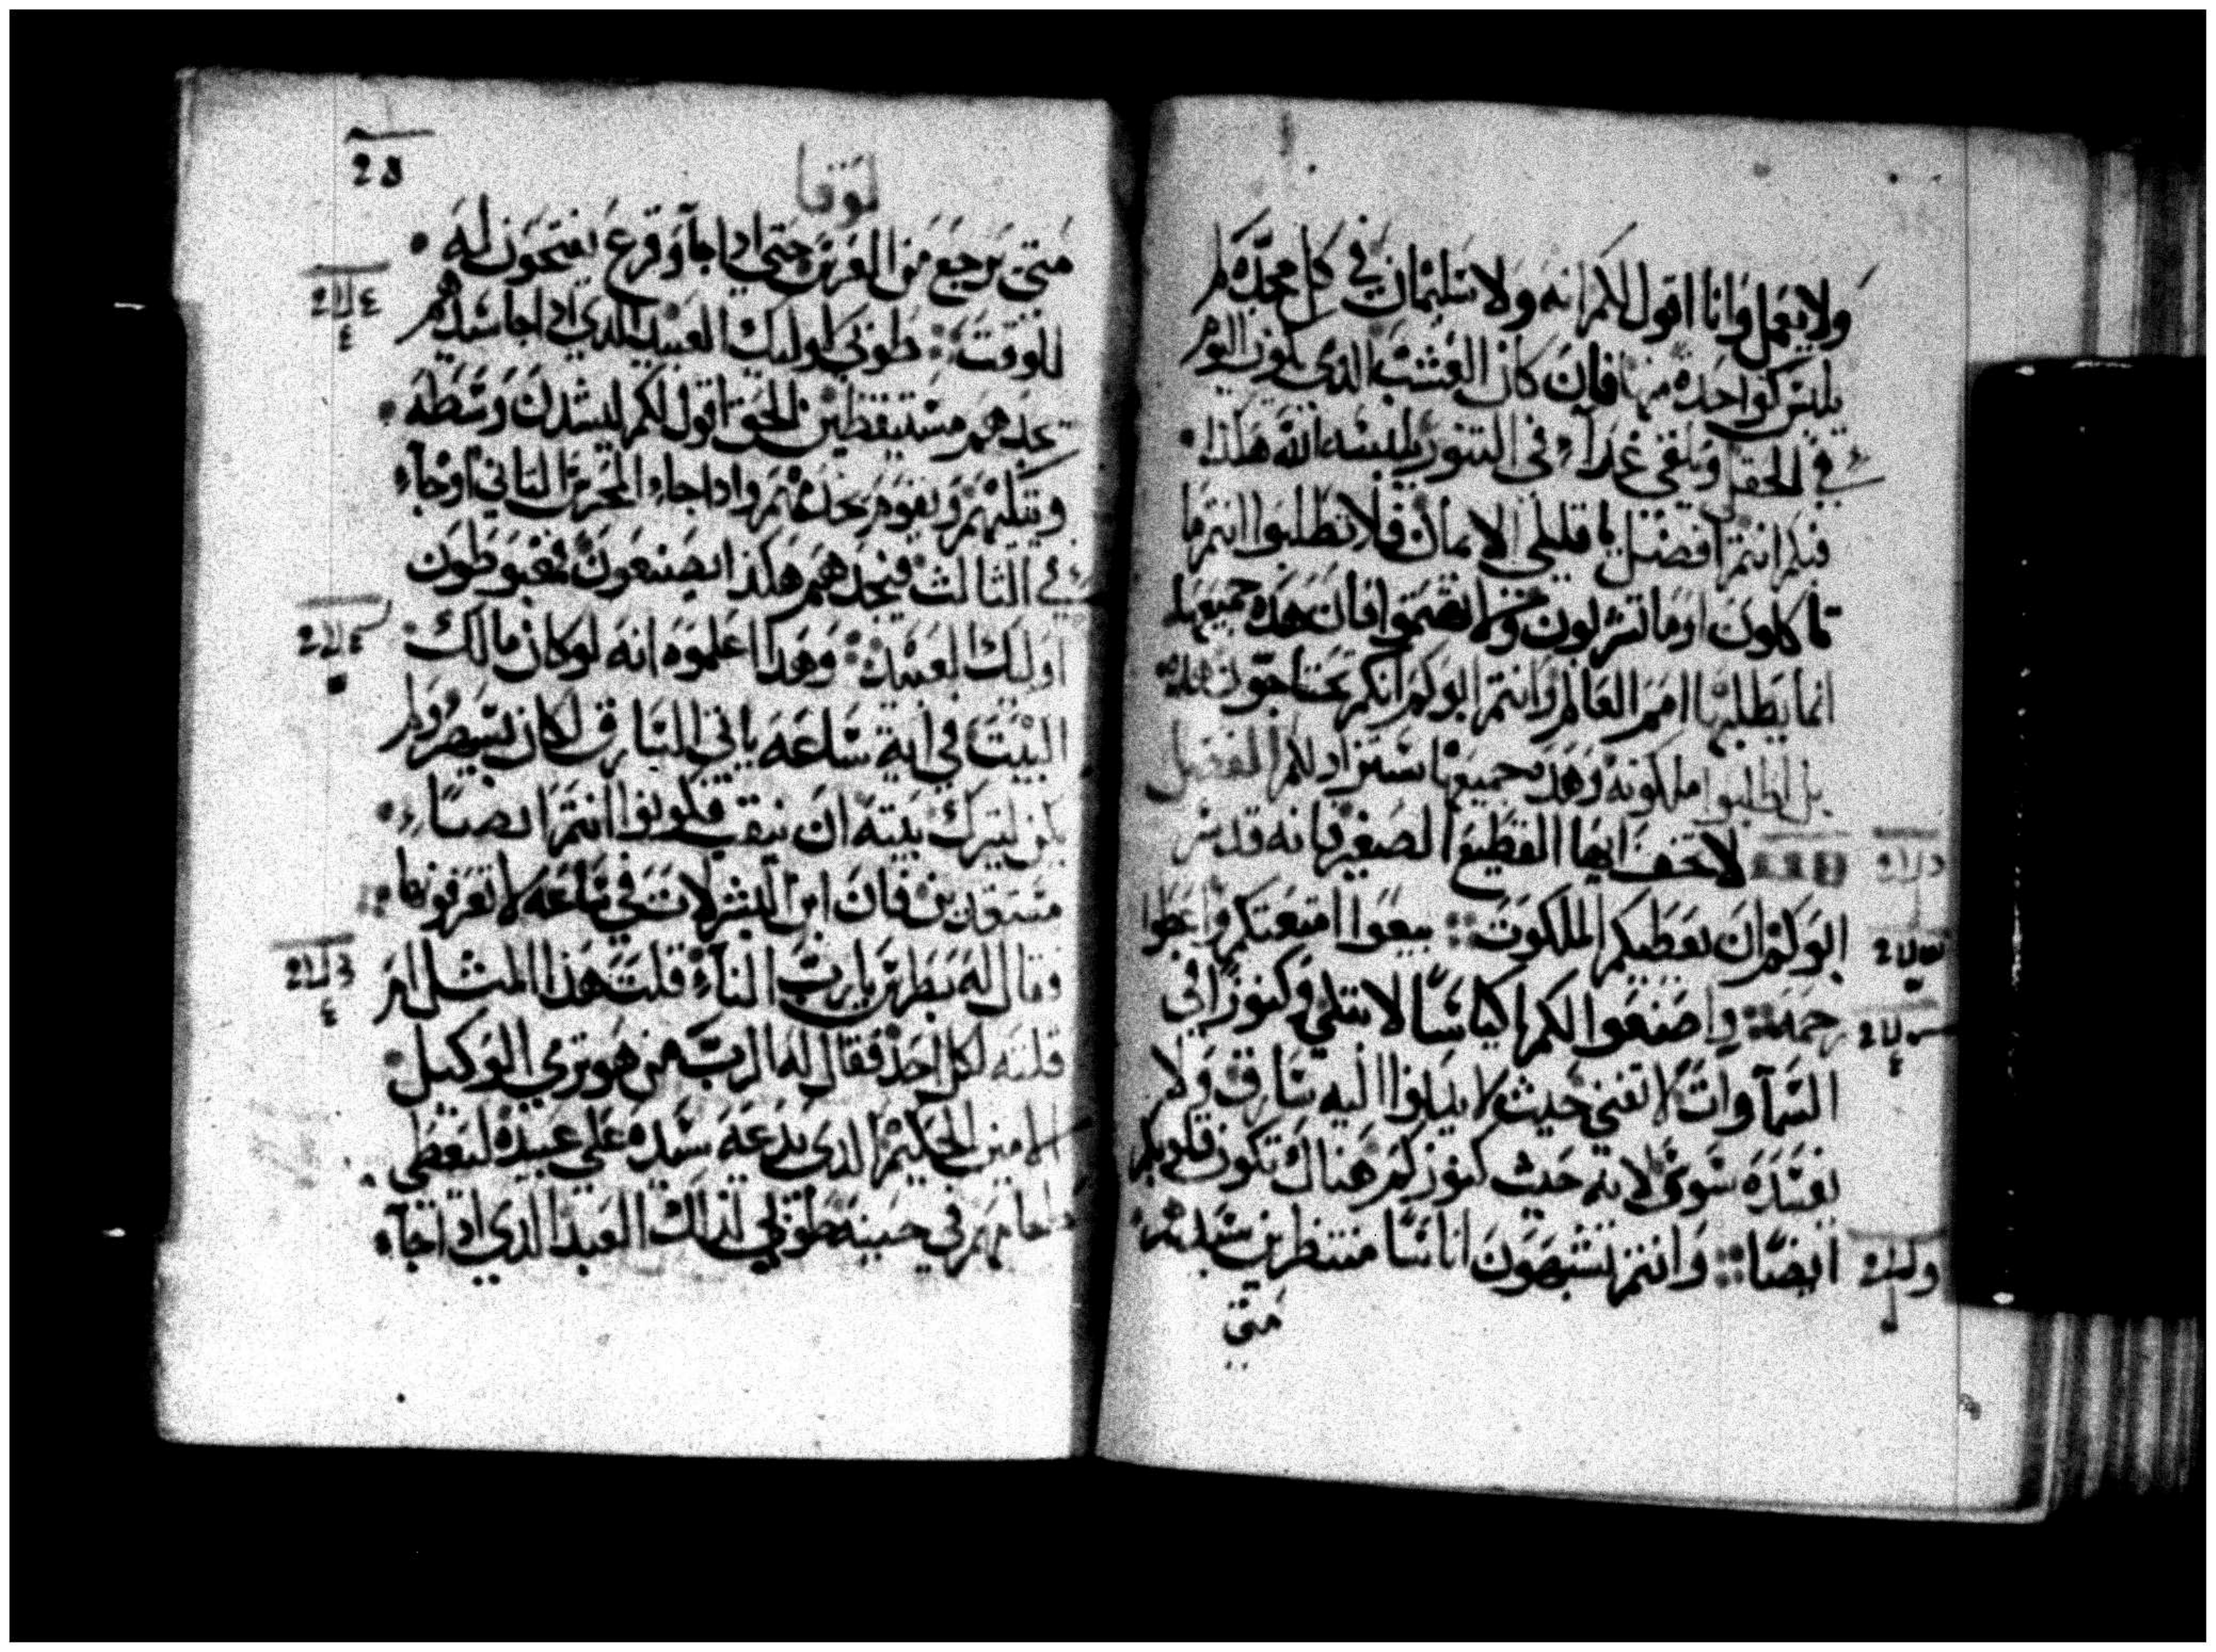 ولا يعمل وانا اقول لكم انه ولا سليمان في كل مجده لم
يلبس كواحده منها فان كان العشب الذي يكون اليوم
في الحقل ويلقي غداء في التنور يلبسه الله هكذا
فكم انتم افضل يا قليلي الايمان فلا تطلبوا انتم ما
تاكلون او ما تشربون ولا تهتموا فان هذه جميعها
انما يطلبها امم العالم وانتم ابوكم انكم تحتاجون هذه
بل اطلبوا ملكوته وهذه جميعها ستزاد لكم الفصل
لا تخف ايها القطيع الصغير فانه قد سر
ابوكم ان يعطيكم الملكوت بيعوا امتعتكم واعطوا
رحمة واصنعوا لكم اكياسا لا تبلي وكنوزا في
السماوات لا تفني حيث لا يبلوا اليه سارق ولا
يفسده سوس لانه حيث كنوزكم هناك تكون قلوبكم
ايضا وانتم تشبهون اناسا منتظرين سيدهم
متي
لوقا
متي يرجع من العرس حتي ادا جآ وقرع يفتحون له
للوقت طوبي لاوليك العبيد الذي ادا جا سيدهم
يجدهم مستيقظين الحق اقول لكم ليشدن وسطه
ويتكيهم ويقوم يخدمهم وادا جاء المحرس التاني او جاء
في الثالث فيجدهم هكذا يصنعون مغبوطون
اوليك العبيد وهدا اعلموه انه لو كان مالك
البيت في اية ساعه ياتي السارق لكان يسهر ولم
يكن ليترك بيته ان ينقب فكونوا انتم ايضا
مستعدين فان ابن البشر لات في ساعه لا تعرفونها
وقال له بطرس يارب النآء قلت هذا المثل ام
قلته لكل احد فقال له الرب من هو تري الوكيل
الامين الحكيم الدي يدعه سيده علي عبيده ليعطي
طعامهم في حينه طوبي لذلك العبد الدي ادا جآء